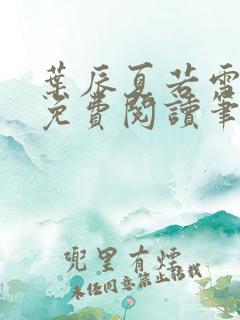 葉辰夏若雪
免費閱讀筆
兜里有煙
未經同意禁止轉載